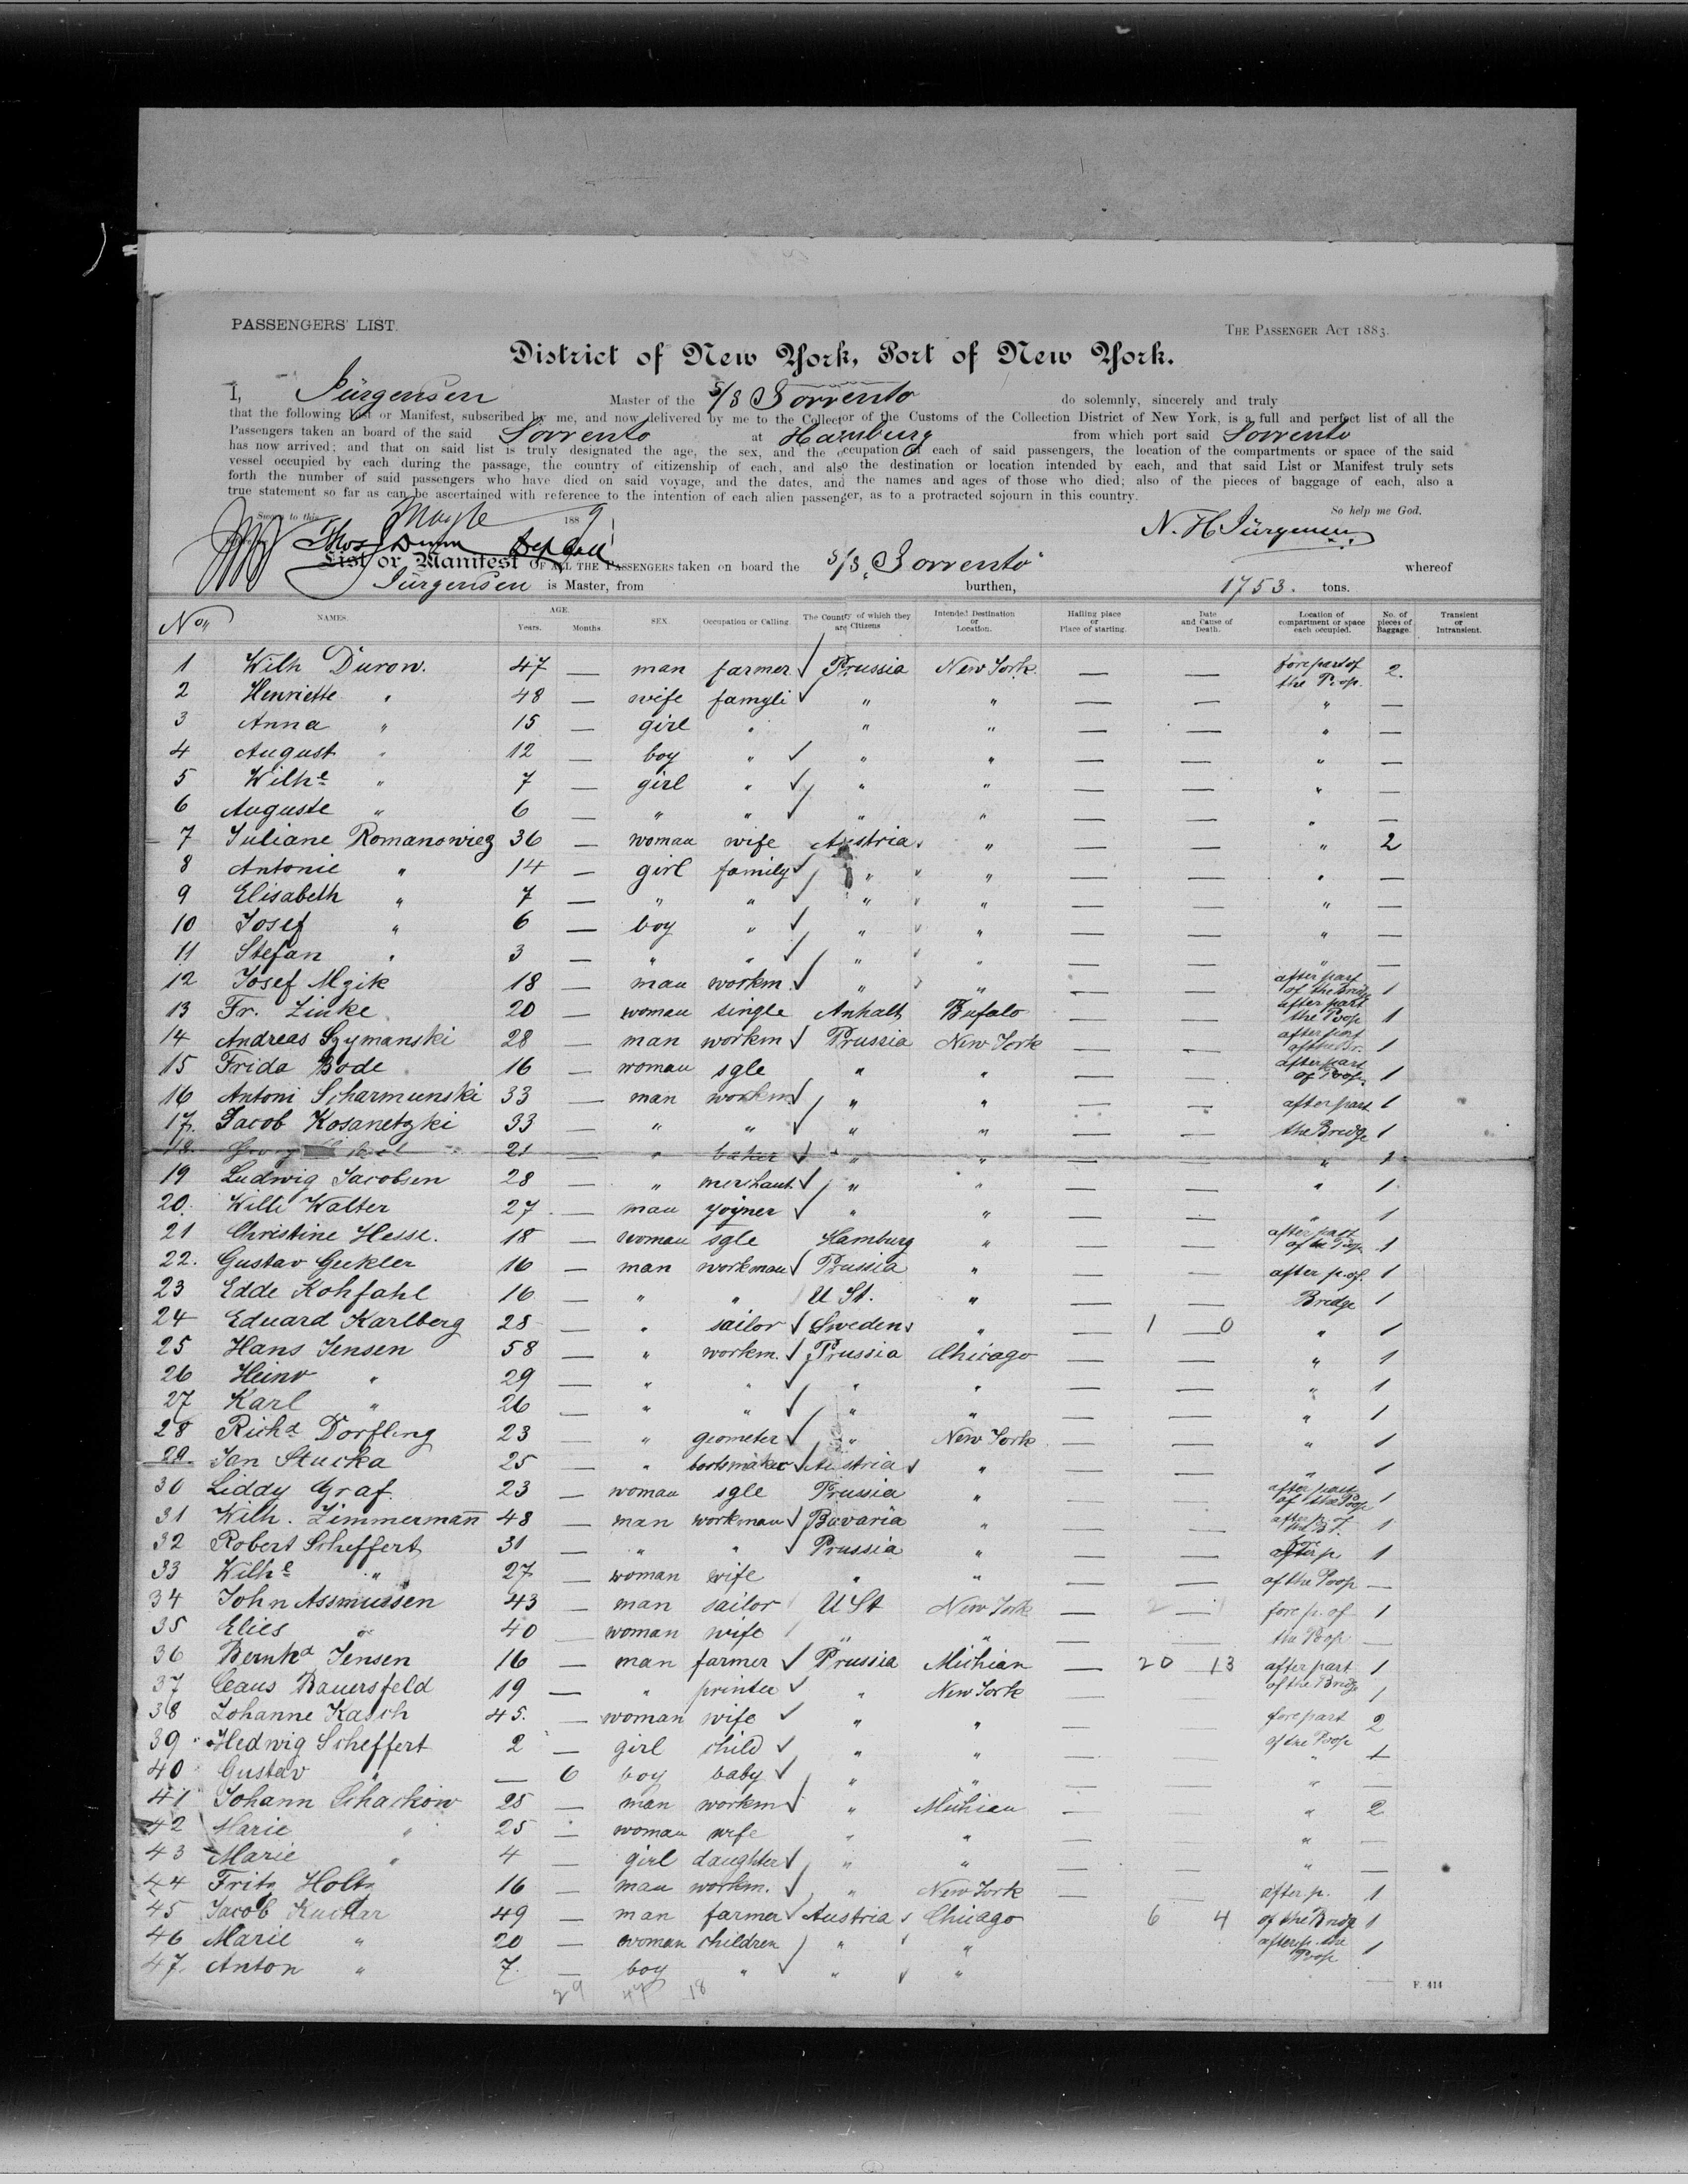 PASSENGERS' LIST.
THE PASSENGER ACT 1883.
District of New York, Port of New York.
I, Jürgensen Master of the S/S Sorrento do solemnly, sincerely and truly
that the following List or Manifest, subscribed by me, and now delivered by me to the Collector of the Customs of the Collection District of New York, is a full and perfect list of all the
Passengers taken an board of the said Sorrento at Hamburg from which port said Sorrento
has now arrived; and that on said list is truly designated the age, the sex, and the occupation of each of said passengers, the location of the compartments or space of the said
vessel occupied by each during the passage, the country of citizenship of each, and also the destination or location intended by each, and that said List or Manifest truly sets
forth the number of said passengers who have died on said voyage, and the dates, and the names and ages of those who died; also of the pieces of baggage of each, also a
true statement so far as can be ascertained with reference to the intention of each alien passenger, as to a protracted sojourn in this country.
Sworn to this 1889 So help me God.
N. H. Jürgensen
Thos Dunn Dep Coll
List or Manifest OF ALL THE PASSENGERS taken on board the S/S "Sorrento" whereof
Jürgensen is Master, from burthen, 1753. tons.
No NAMES. AGE. Years. Months. SEX. Occupation or Calling. The County of which they are Citizens Intended Destination or Location. Hailing place or Place of starting. Date and Cause of Death. Location of compartment or space each occupied. No. of pieces of Baggage. Transient or Intransient.
1 Wilh Durow. 47 — man farmer Prussia New York — — fore part of the Poop 2.
2 Henriette " 48 — wife famyli " " — — " —
3 Anna " 15 — girl " " " — — " —
4 August " 12 — boy " " " — — " —
5 Wilhe " 7 — girl " " " — — " —
6 Auguste " 6 — " " " " — — " —
7 Juliane Romanowiez 36 — woman wife Austria " — — " 2
8 Antonie " 14 — girl family " " — — " —
9 Elisabeth " 7 — " " " " — — " —
10 Josef " 6 — boy " " " — — " —
11 Stefan " 3 — " " " " — — " —
12 Josef Mzik 18 — man workm. " " — — after part of the Bridge 1
13 Fr. Zinke 20 — woman single Anhalt Bufalo — — after part the Poop 1
14 Andreas Szymanski 28 — man workm Prussia New York — — after part of the Br. 1
15 Frida Bode 16 — woman sgle " " — — after part of Poop 1
16 Antoni Scharmunski 33 — man workm " " — — after part 1
17. Jacob Kosanetzki 33 — " " " " — — the Bredge 1
18. 21 — " baker " " — — " 1
19 Ludwig Jacobsen 28 — " merchant " " — — " 1
20. Willi Walter 27 — man yoyner " " — — " 1
21 Christine Hesse. 18 — woman sgle Hamburg " — — after part of the Poop 1
22. Gustav Geckler 16 — man workman Prussia " — — after p. of 1
23 Edde Kohfahl 16 — " " U St. " — — Bredge 1
24 Eduard Karlberg 28 — " sailor Sweden " — 1 — 0 " 1
25 Hans Jensen 58 — " workm. Prussia Chicago — — " 1
26 Heinr " 29 — " " " " — — " 1
27 Karl " 26 — " " " " — — " 1
28 Richd Dorfling 23 — " geometer " New York — — " 1
29. Jan Stucka 25 — " Austria " — — " 1
30 Liddy Graf. 23 — woman sgle Prussia " — — after part of the Poop 1
31 Wilh. Zimmermann 48 — man workman Bavaria " — — after p. of the B. 1
32 Robert Scheffert 31 — " " Prussia " — — p. 1
33 Wilhe " 27 — woman wife " " — — of the Poop —
34 John Assmussen 43 — man sailor U St New York — 2 — 1 fore p. of 1
35 Elies " 40 — woman wife " " — — the Poop —
36 Bernhd Jensen 16 — man farmer Prussia Michian — 20 — 13 after part 1
37 Claus Bauersfeld 19 — " printer " New York — — of the Bridge 1
38 Johanne Kasch 45. — woman wife " " — — fore part 2
39 Hedwig Scheffert 2 — girl child " " — — of the Poop 1
40 Gustav " — 6 boy baby " " — — " —
41 Johann Schachow 25 — man workm " Michian — — " 2
42 Marie " 25 — woman wife " " — — " —
43 Marie " 4 — girl daughter " " — — " —
44 Fritz Holtz 16 — man workm. " New York — — after p. 1
45 Jacob Kuchar 49 — man farmer Austria Chicago 6 4 of the Bridge 1
46 Marie " 20 — woman children " " after p. the Poop 1
47. Anton " 7. — boy " " " —
29 47 18
F. 414